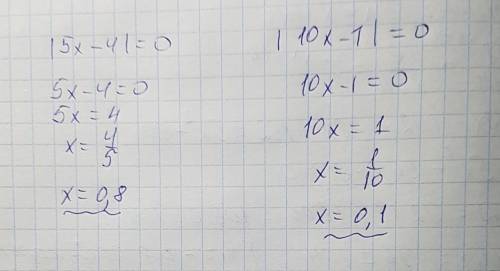 |5x-4|=0
5x-4=0
5x=4
x=4/5
x=0,8
|10x-1|=0
10x-1=0
10x=1
x=1/10
x=0,1